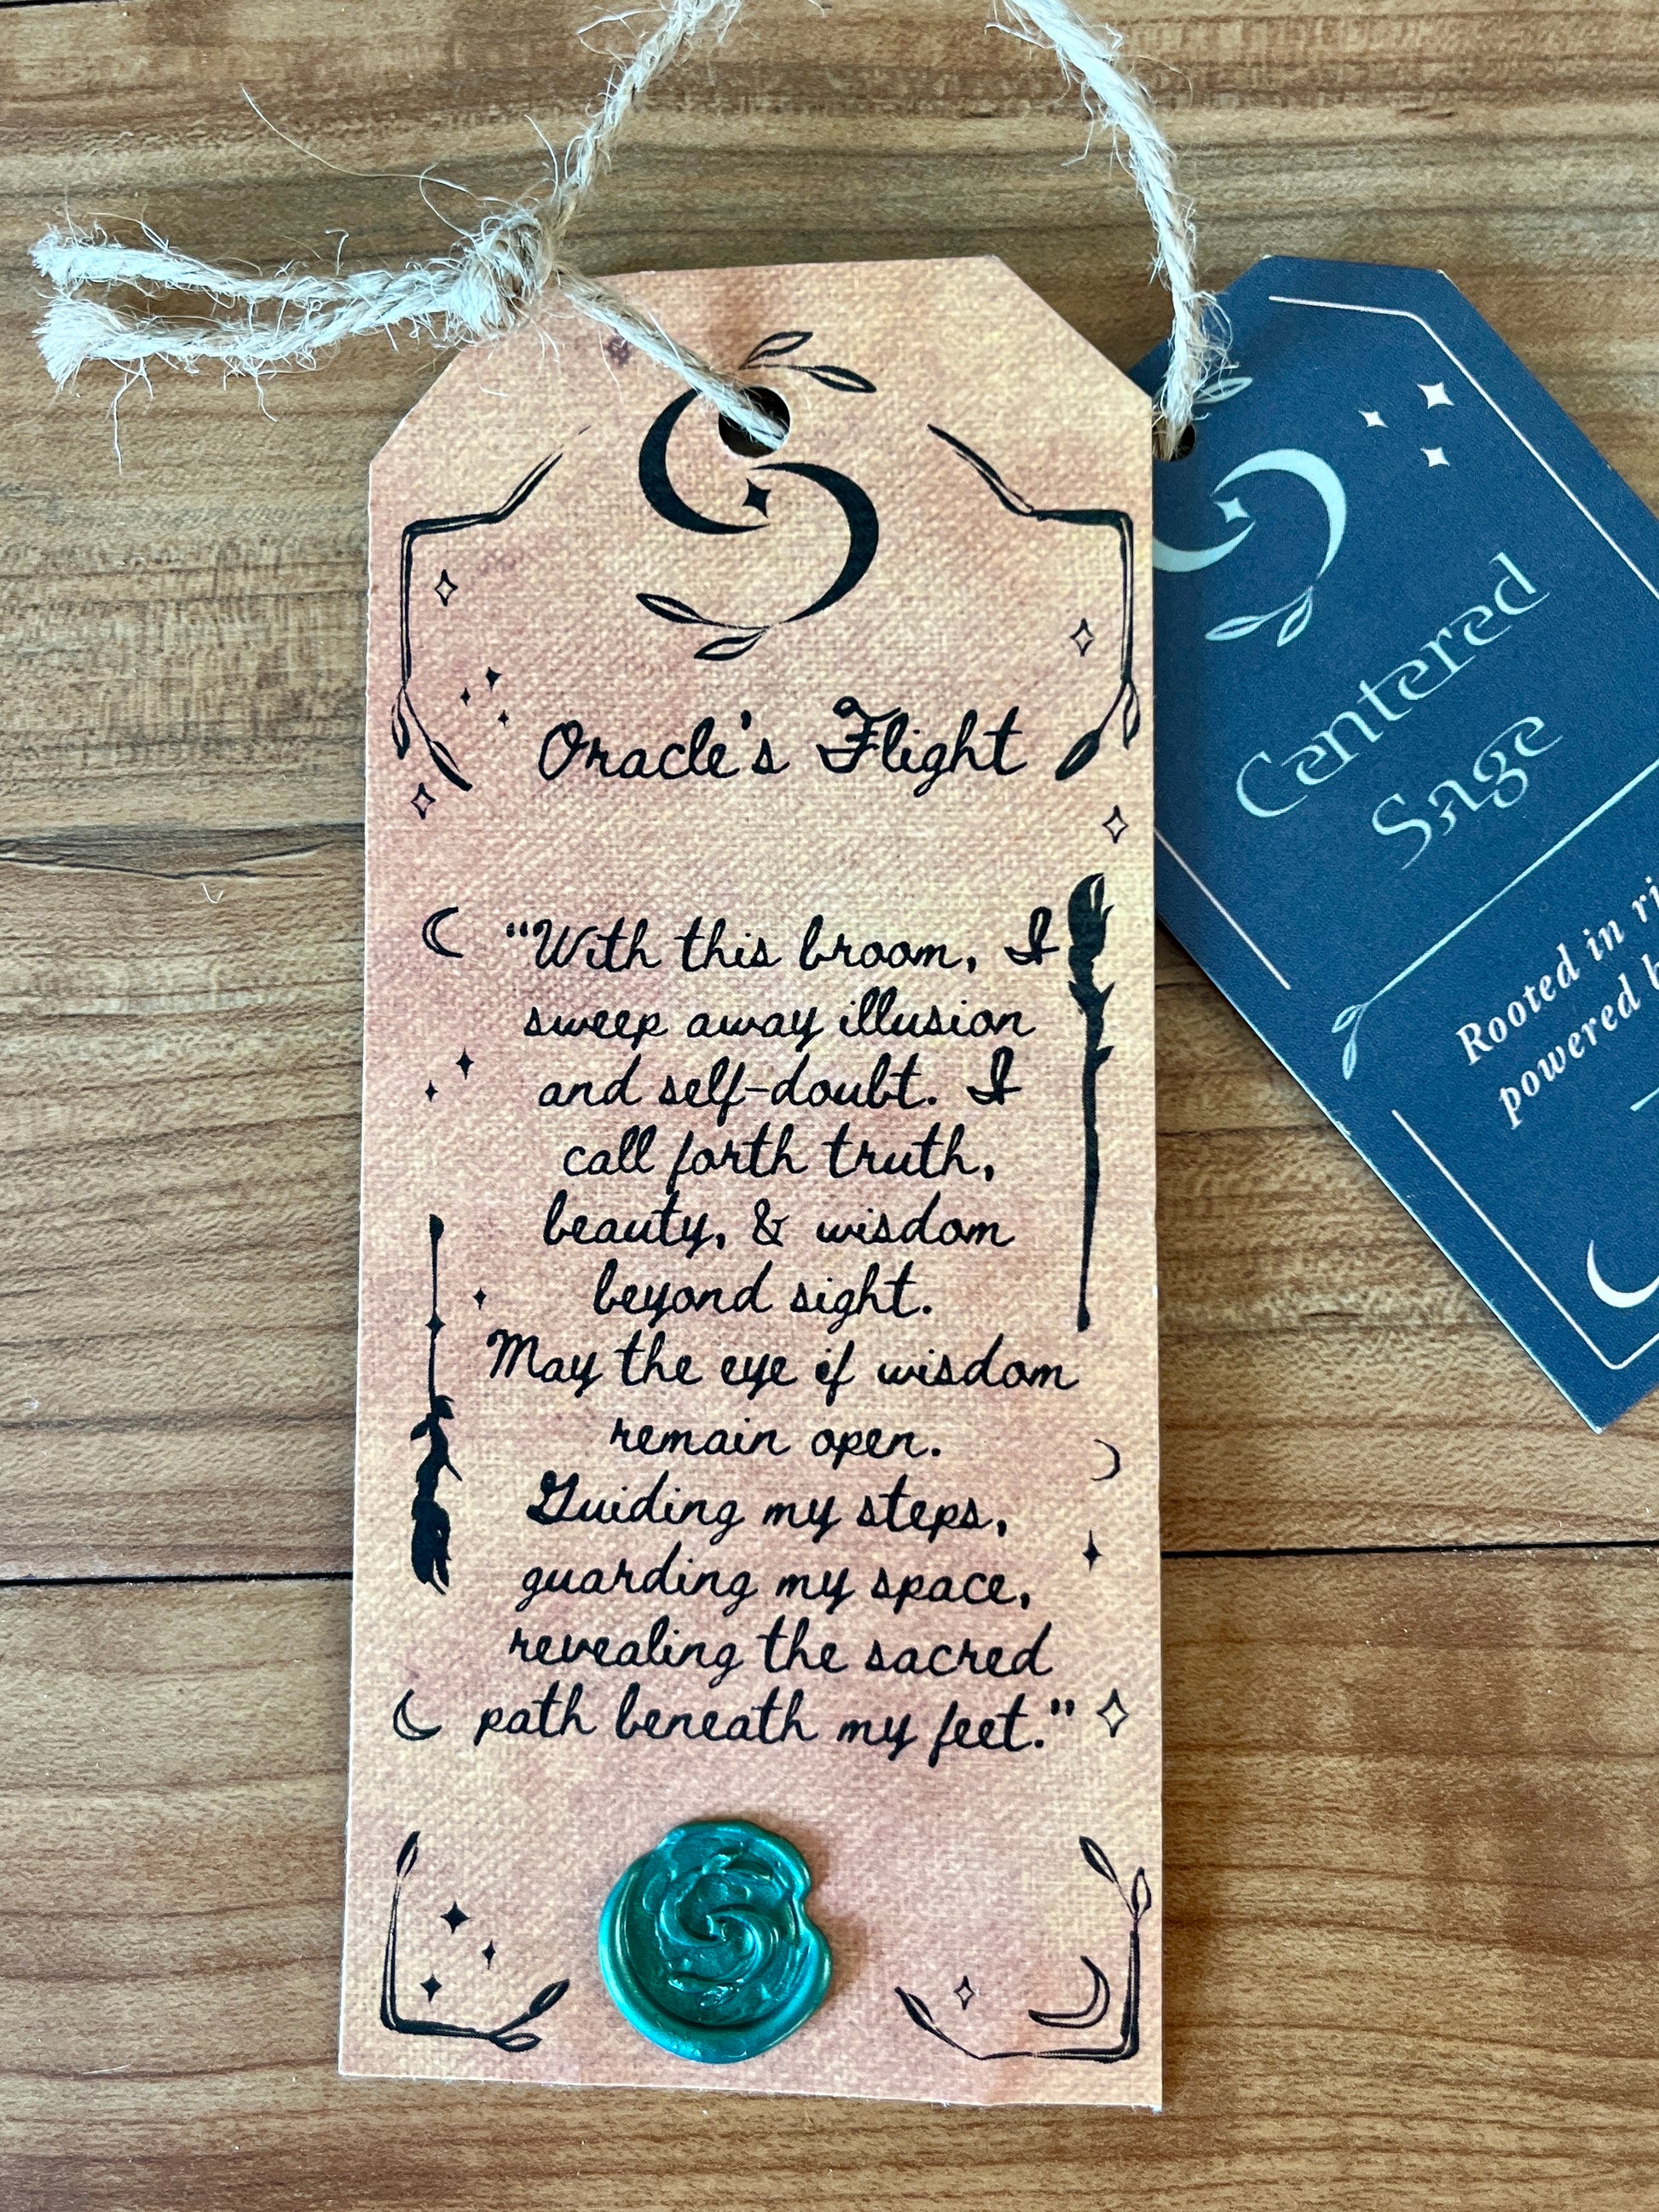 Oracle's Flight
"With this broom, I
sweep away illusion
and self-doubt. I
call forth truth,
beauty, & wisdom
beyond sight.
May the eye if wisdom
remain open.
Guiding my steps,
guarding my space,
revealing the sacred
path beneath my feet."
Centered
Sage
Rooted in
powered